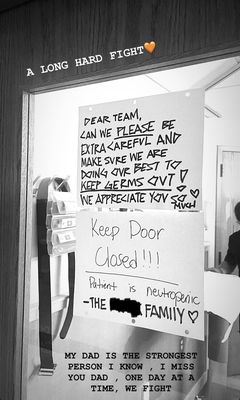 A LONG HARD FIGHT🧡
DEAR TEAM,
CAN WE PLEASE BE
EXTRA CAREFUL AND
MAKE SURE WE ARE
DOING OUR BEST TO
KEEP GERMS OUT!
WE APPRECIATE YOU SO MUCH
Keep Door
Closed!!!
Patient is neutropenic
-THE FAMILY ♡
MY DAD IS THE STRONGEST
PERSON I KNOW , I MISS
YOU DAD , ONE DAY AT A
TIME, WE FIGHT